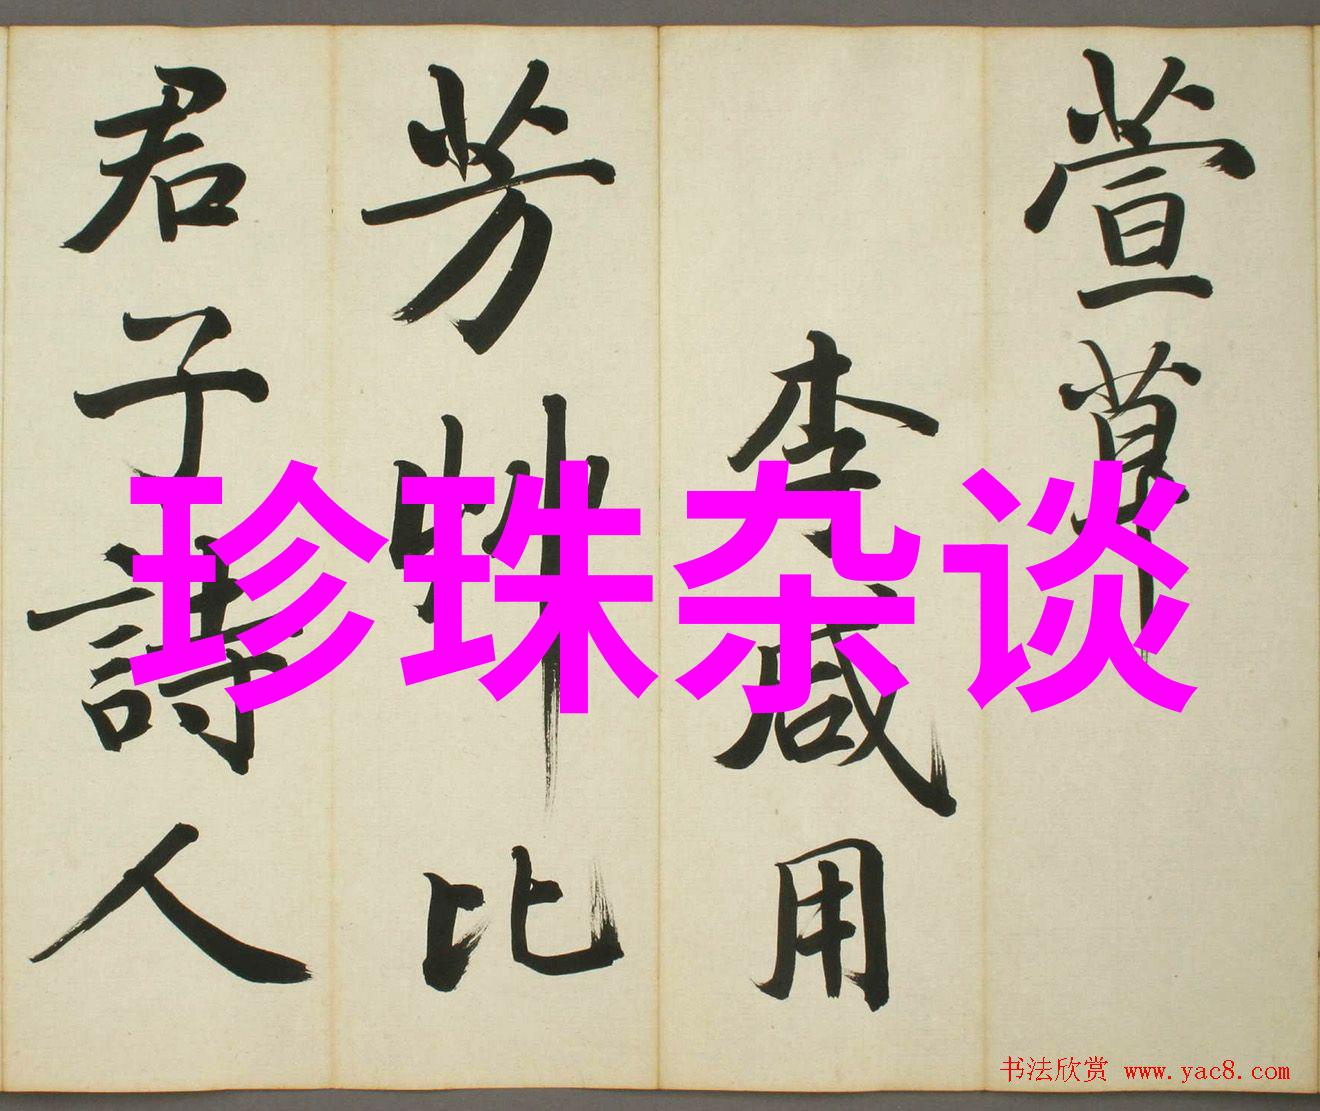 萱草
李咸用
芳艸比
君子詩人
珍珠杂谈
书法欣赏 www.yac8.com